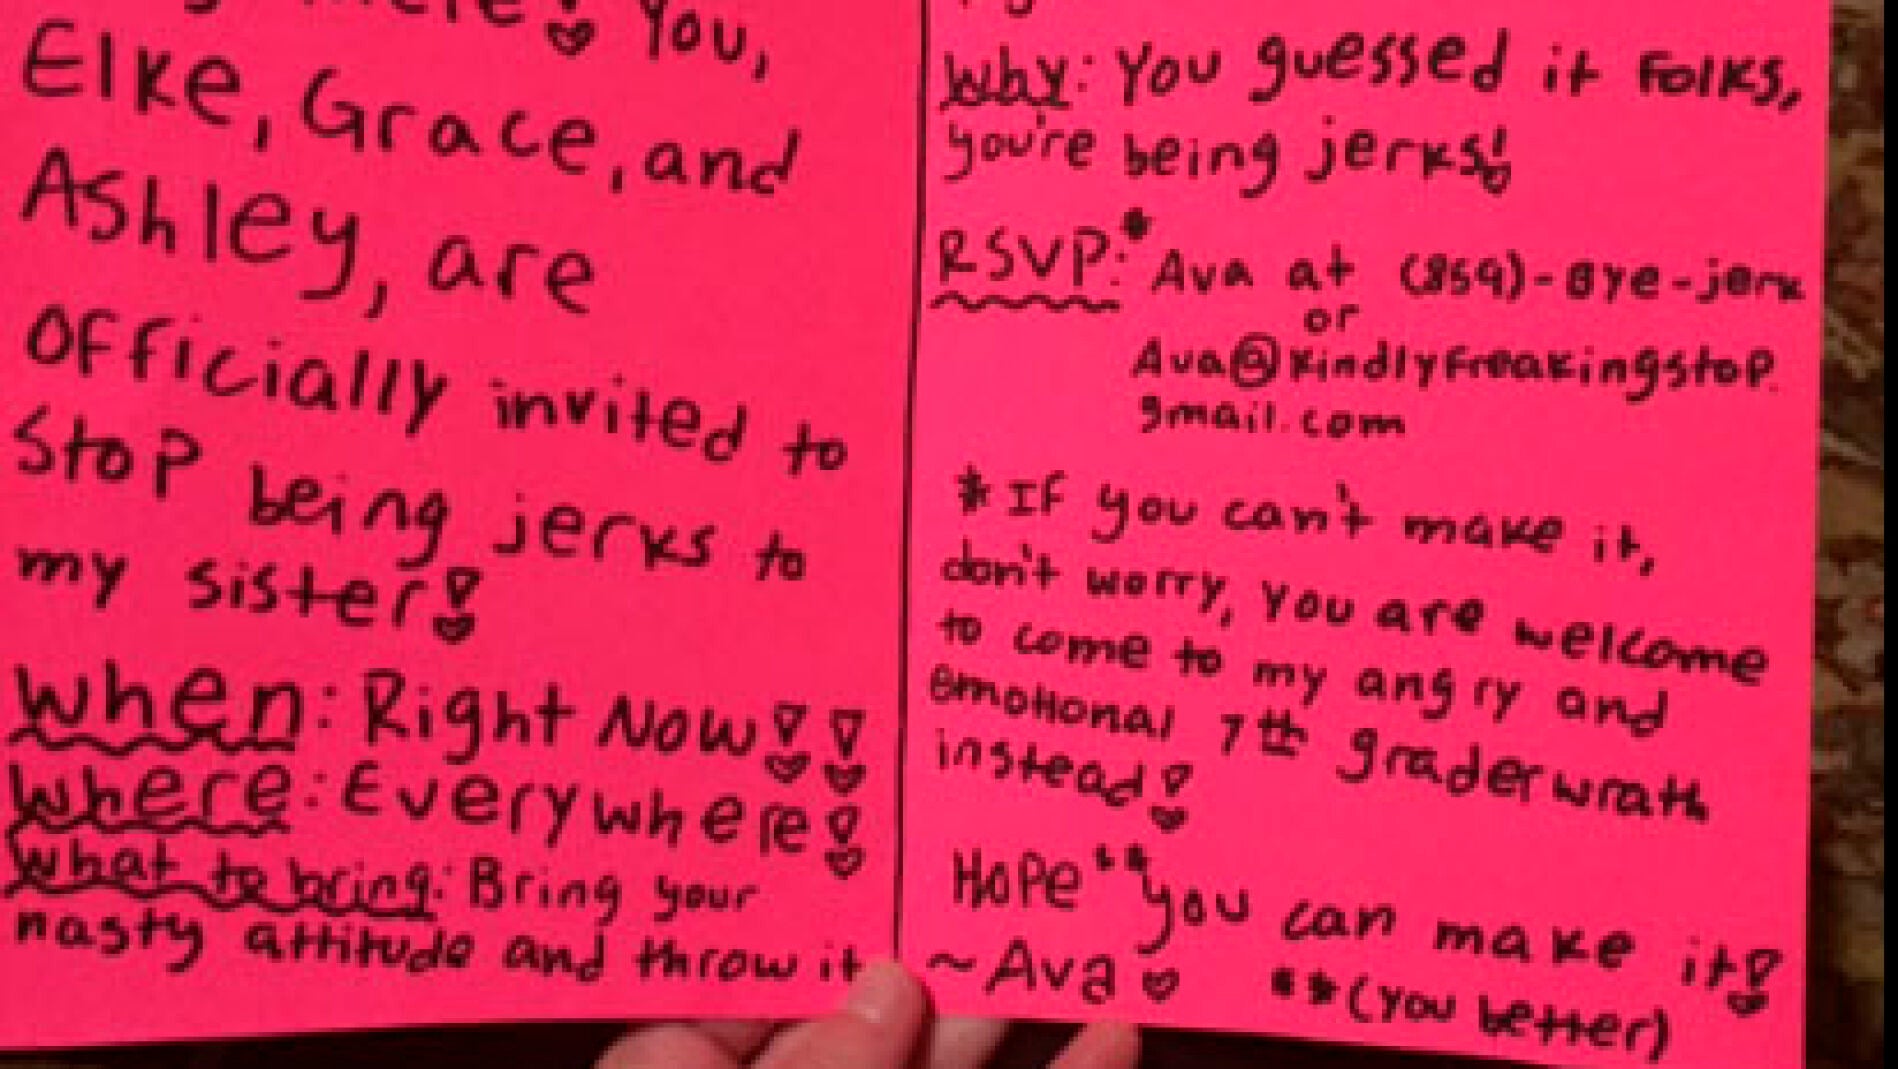 You,
Elke, Grace, and
Ashley, are
officially invited to
stop being jerks to
my sister!
When: Right Now!!
Where: Everywhere!
What to bring: Bring your
nasty attitude and throw it
Why: You guessed it folks,
you're being jerks!
RSVP:* Ava at (859)-Bye-jerk
or
Ava@kindlyfreakingstop.
gmail.com
*If you can't make it,
don't worry, you are welcome
to come to my angry and
emotional 7th grader wrath
instead!
Hope** you can make it!
~Ava
**(you better)